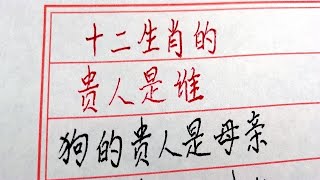 十二生肖的
贵人是谁
狗的贵人是母亲